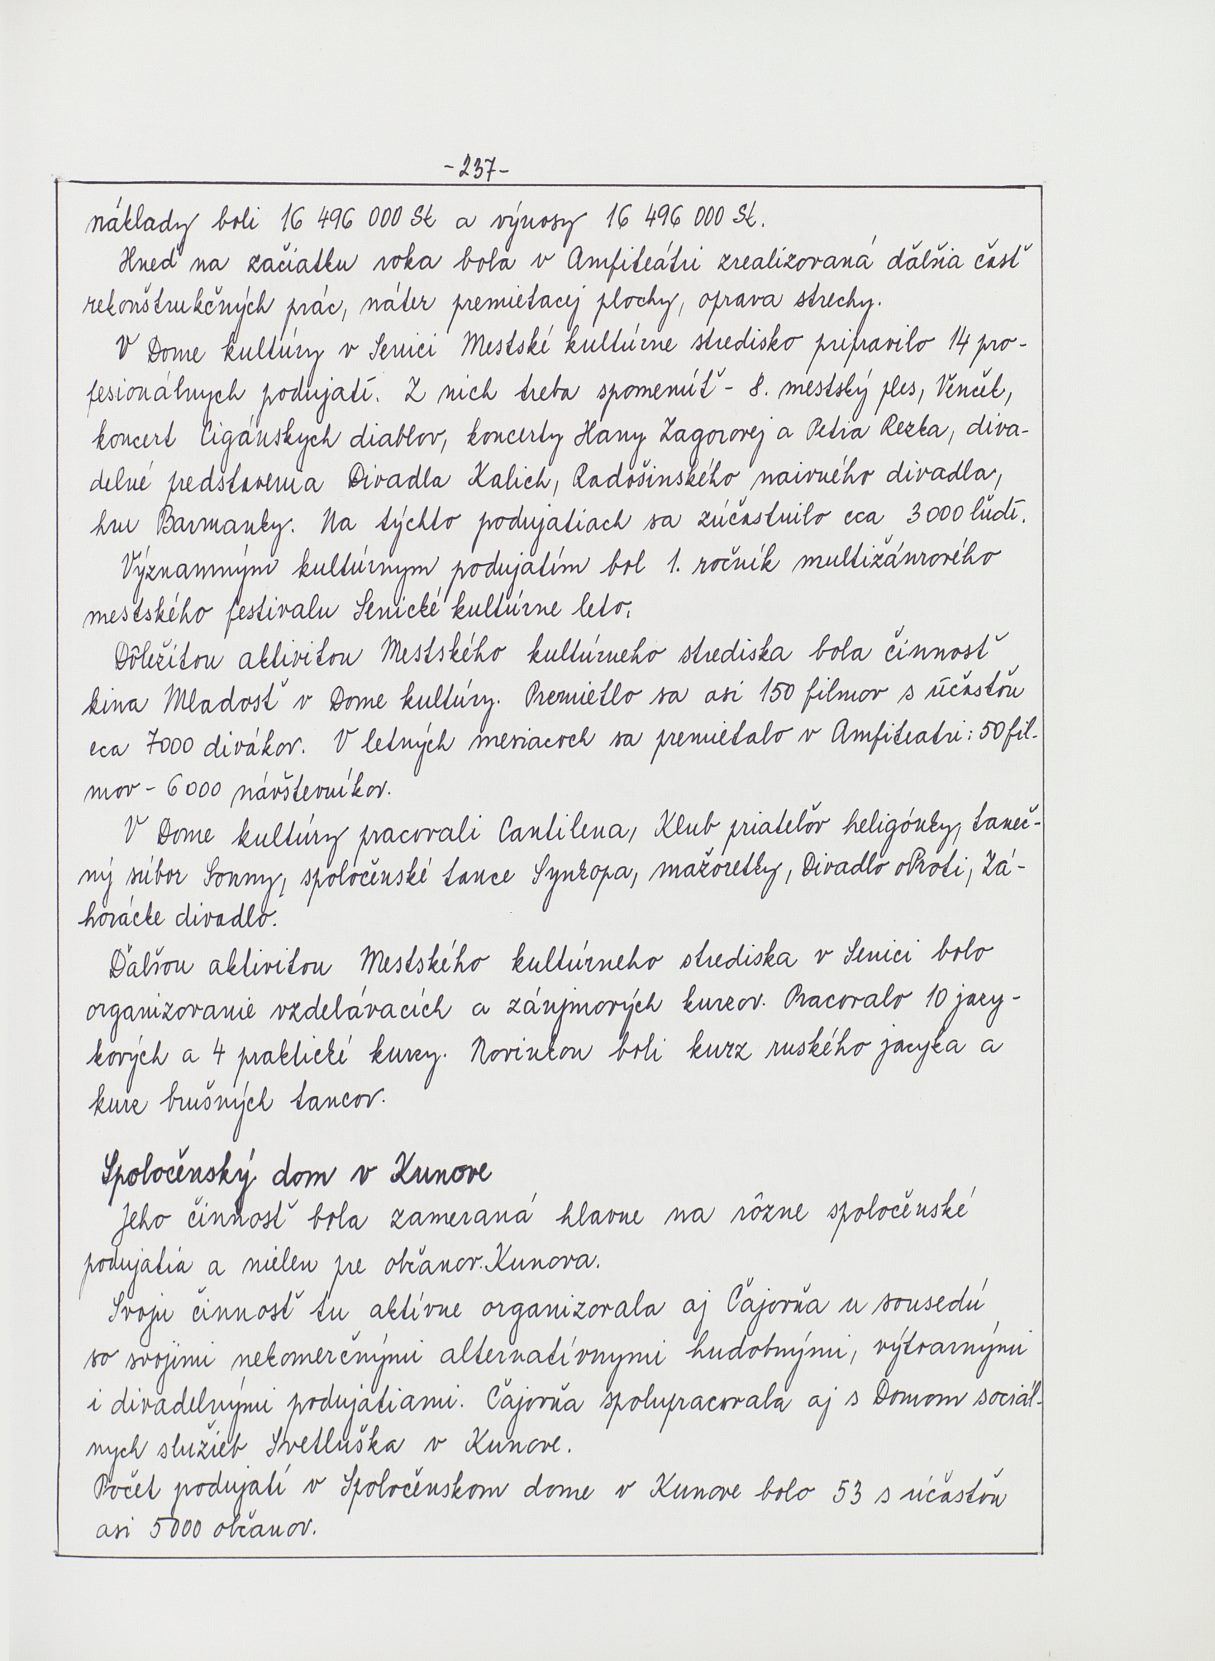 -237-
náklady boli 16 496 000 Sk a výnosy 16 496 000 Sk.
Hneď na začiatku roka bola v Amfiteátri zrealizovaná ďalšia časť
rekonštrukčných prác, náter premietacej plochy, oprava strechy.
V Dome kultúry v Senici Mestské kultúrne stredisko pripravilo 14 pro-
fesionálnych podujatí. Z nich treba spomenúť - 8. mestský ples, Venček,
koncert Cigánskych diablov, koncerty Hany Zagorovej a Petra Rezka, diva-
delné predstavenia Divadla Kalich, Radošinského naivného divadla,
hru Barmanky. Na týchto podujatiach sa zúčastnilo cca 3 000 ľudí.
Významným kultúrnym podujatím bol 1. ročník multižánrového
mestského festivalu Senické kultúrne leto.
Dôležitou aktivitou Mestského kultúrneho strediska bola činnosť
kina Mladosť v Dome kultúry. Premietlo sa asi 150 filmov s účasťou
cca 7000 divákov. V letných mesiacoch sa premietalo v Amfiteatri: 50 fil-
mov - 6 000 návštevníkov.
V Dome kultúry pracovali Cantilena, Klub priateľov heligónky, taneč-
ný súbor Sonny, spoločenské tance Synkopa, mažoretky, Divadlo oProti, Zá-
horácke divadlo.
Ďalšou aktivitou Mestského kultúrneho strediska v Senici bolo
organizovanie vzdelávacích a záujmových kurzov. Pracovalo 10 jazy-
kových a 4 praktické kurzy. Novinkou boli kurz ruského jazyka a
kurz brušných tancov.
Spoločenský dom v Kunove
Jeho činnosť bola zameraná hlavne na rôzne spoločenské
podujatia a nielen pre občanov Kunova.
Svoju činnosť tu aktívne organizovala aj Čajovňa u sousedú
so svojimi nekomerčnými alternatívnymi hudobnými, výtvarnými
i divadelnými podujatiami. Čajovňa spolupracovala aj s Domom sociál-
nych služieb Svetluška v Kunove.
Počet podujatí v Spoločenskom dome v Kunove bolo 53 s účasťou
asi 5 000 občanov.